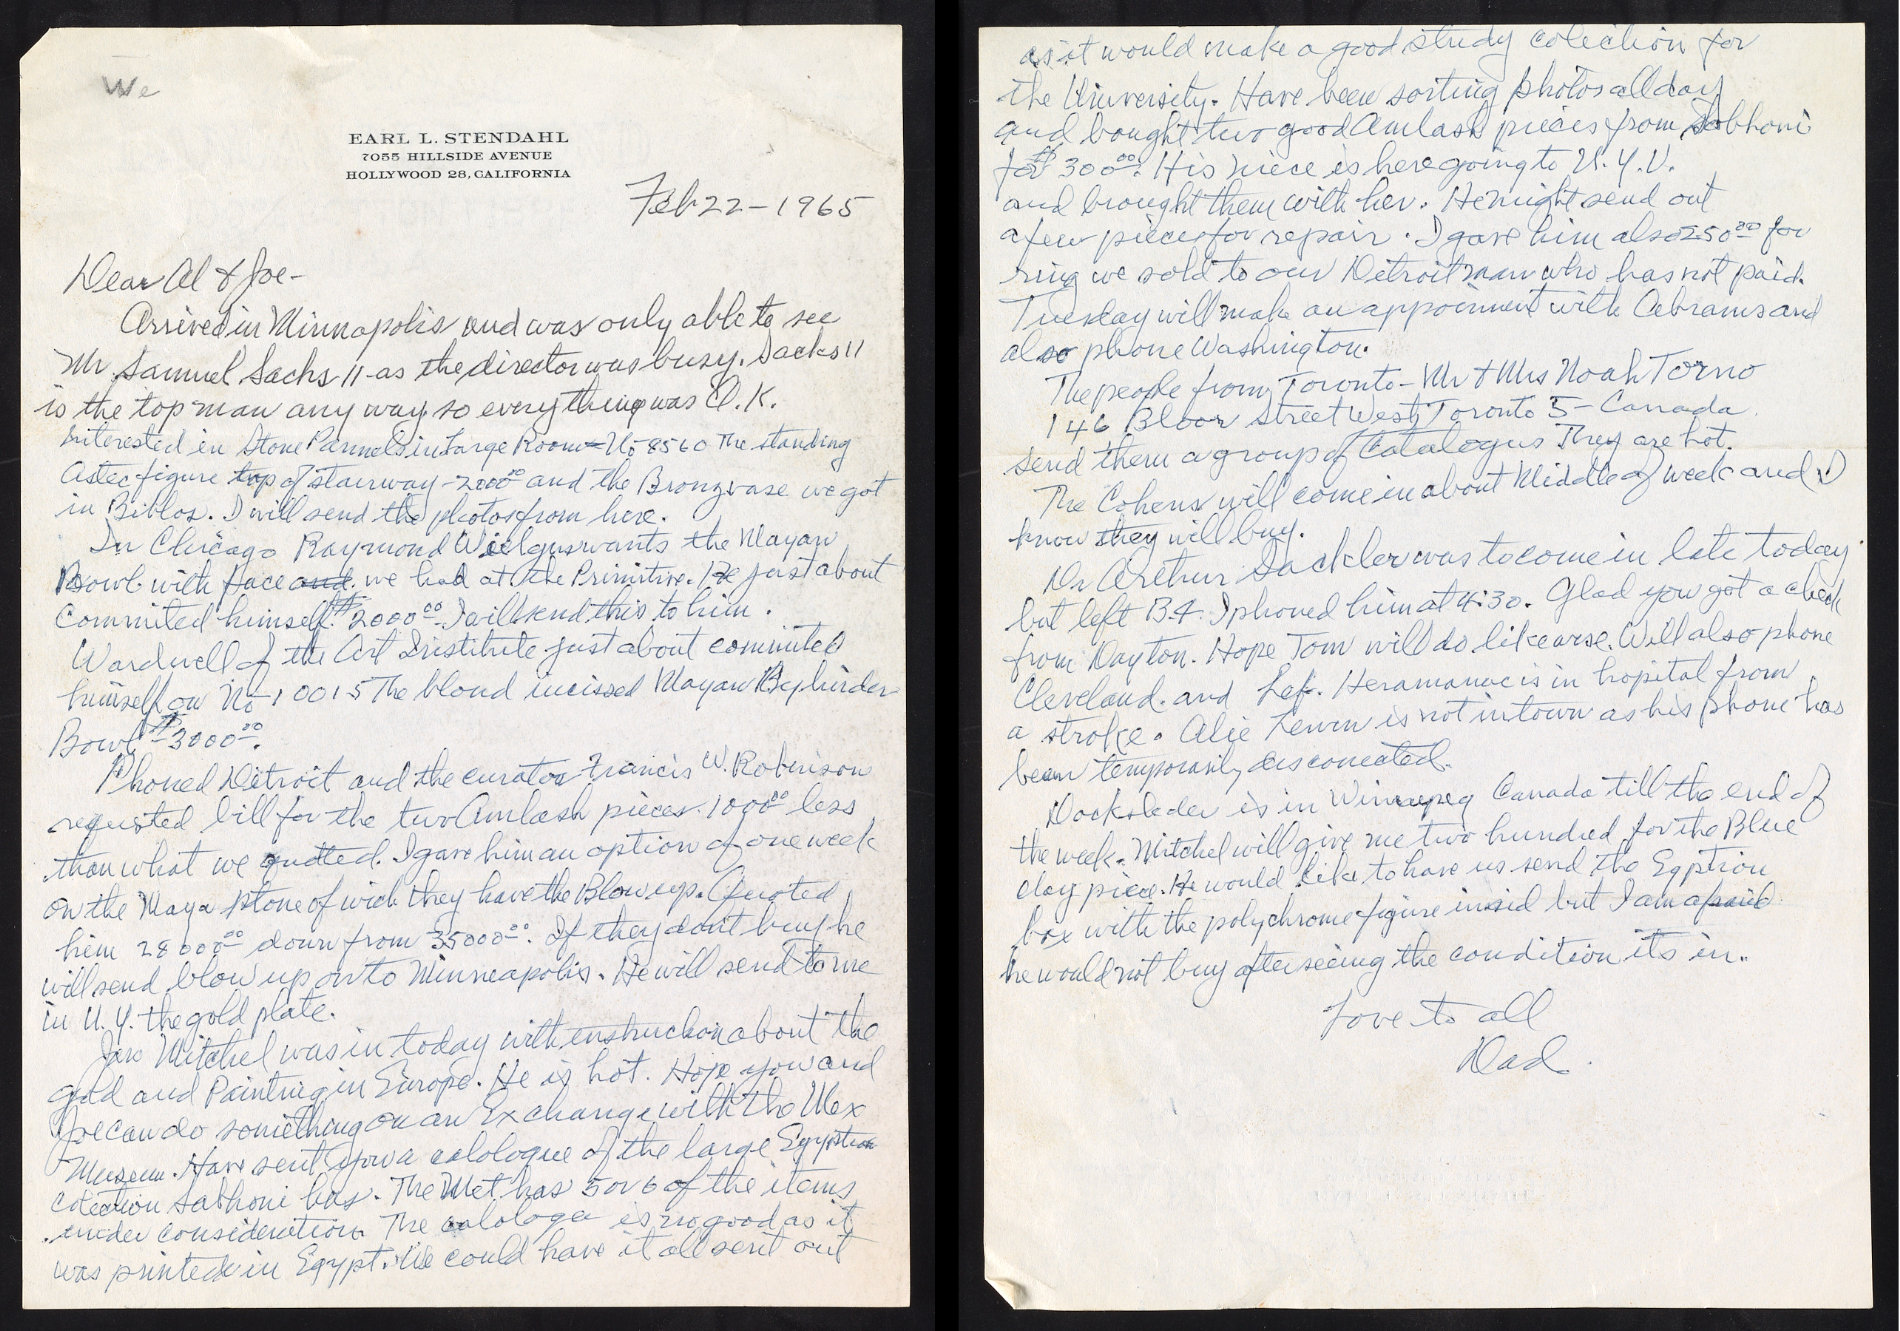 We
EARL L. STENDAHL
7055 HILLSIDE AVENUE
HOLLYWOOD 28, CALIFORNIA
Feb 22 - 1965
Dear Al & Joe -
Arrived in Minnapolis and was only able to see
Mr. Samuel Sachs 11 - as the director was busy. Sachs 11
is the top man any way so everything was O.K.
Interested in Stone Pannels in Large Room - No 8560 The standing
Astec figure top of stairway - 2000.00 and the Bronz vase we got
in Biblos. I will send the photos from here.
In Chicago Raymond Wielgus wants the Mayan
Bowl with face and we had at the Primitive. He just about
Commited himself. $2000.00. I will send this to him.
Wardwell of the Art Institute just about commited
himself on No 10015 The blond incissed Mayan
Bowl $3000.00.
Phoned Detroit and the curator Francis W. Robinson
requsted bill for the two Amlash pieces. 1000.00 less
than what we quoted. I gave him an option of one week
on the Maya stone of wich they have the Blow up. Quoted
him 28000.00 down from 35000.00. If they dont buy he
will send blow up on to Minneapolis. He will send to me
in N.Y. the gold plate.
Jan Mitchel was in today with instruction about the
gold and Painting in Europe. He is hot. Hope you and
Joe can do something on an Exchange with the Mex
Museum. Have sent you a catologue of the large Egyption
Colection Sabhoni has. The Met has 5 or 6 of the items
under consideration. The catologe is no good as it
was printed in Egypt. We could have it all sent out
as it would make a good study colection for
the University. Have been sorting photos all day
and bought two good Amlash pieces from Sabhoni
for $300.00. His niece is here going to N.Y.U.
and brought them with her. He might send out
a few pieces for repair. I gave him also 250.00 for
ring we sold to our Detroit man who has not paid.
Tuesday will make an appoinment with Abrams and
also phone Washington.
The people from Toronto - Mr & Mrs Noah Torno
146 Bloor Street West, Toronto 5 - Canada.
send them a group of Catalogus They are hot.
The Cohens will come in about Middle of week and I
know they will buy.
Dr Arthur Sackler was to come in late today
but left B.4. I phoned him at 4:30. Glad you got a check
from Dayton. Hope Tom will do likewise. Will also phone
Cleveland. and Lef. Heramanec is in hospital from
a stroke. Alie Lewin is not in town as his phone has
been temporarily disconected.
Dockstader is in Winnepeg Canada till the end of
the week. Mitchel will give me two hundred for the Blue
clay piece. He would like to have us send the Egption
box with the polychrome figure insid but I am afraid
he would not buy after seeing the condition its in.
Love to all
Dad.